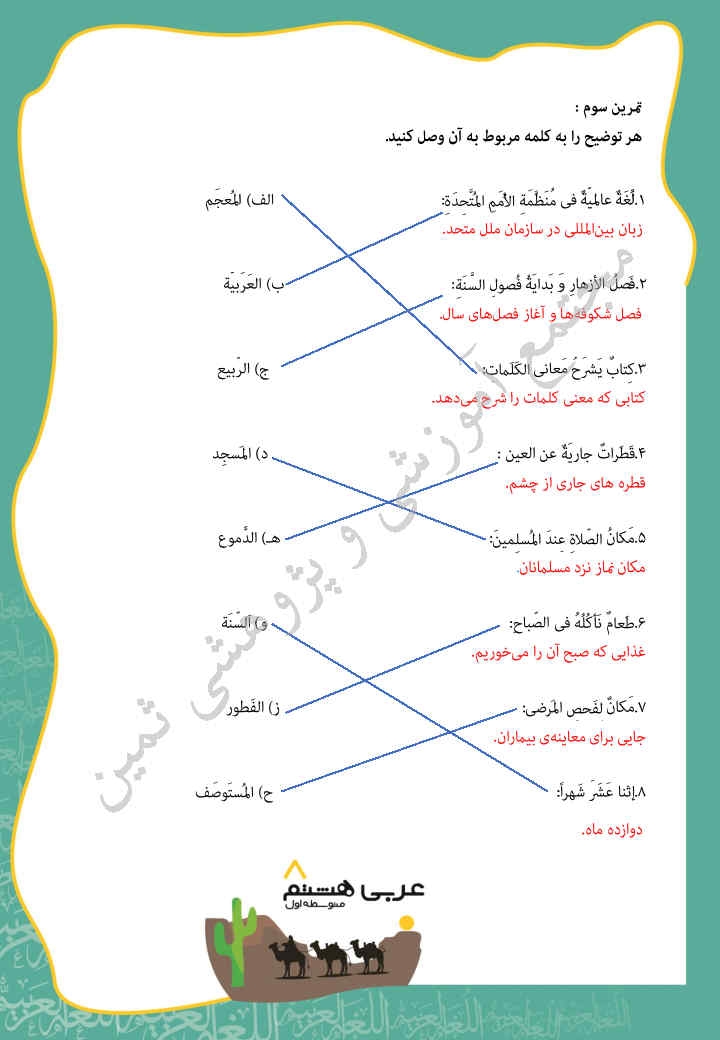 تمرین سوم :
هر توضیح را به کلمه مربوط به آن وصل کنید.
۱.لُغَةٌ عالمیَّةٌ فی مُنَظَّمَةِ الأُمَمِ المُتَّحِدَةِ: الف) المُعجَم
زبان بین‌المللی در سازمان ملل متحد.
۲.فَصلُ الأزهارِ وَ بَدایَةُ فُصولِ السَّنَةِ: ب) العَرَبیّة
فصل شکوفه‌ها و آغاز فصل‌های سال.
۳.کِتابٌ یَشرَحُ مَعانی الکَلَمات: ج) الرّبیع
کتابی که معنی کلمات را شرح می‌دهد.
۴.قَطَراتٌ جاریَةٌ عن العین : د) المَسجِد
قطره های جاری از چشم.
۵.مَکانُ الصّلاةِ عِندَ المُسلِمینَ: هـ) الدَّموع
مکان نماز نزد مسلمانان.
۶.طَعامٌ نَأکُلُهُ فی الصّباح: و) اَلسَّنَة
غذایی که صبح آن را می‌خوریم.
۷.مَکانٌ لفَحصِ المَرضی: ز) الفَطور
جایی برای معاینه‌ی بیماران.
۸.إثنا عَشَرَ شَهراً: ح) المُستَوصَف
دوازده ماه.
مجتمع آموزشی و پژوهشی ثمین
عربی هشتم
۸
متوسطه اول
اللغه العربیة اللغه العربیة اللغه العربیة اللغه العربیة